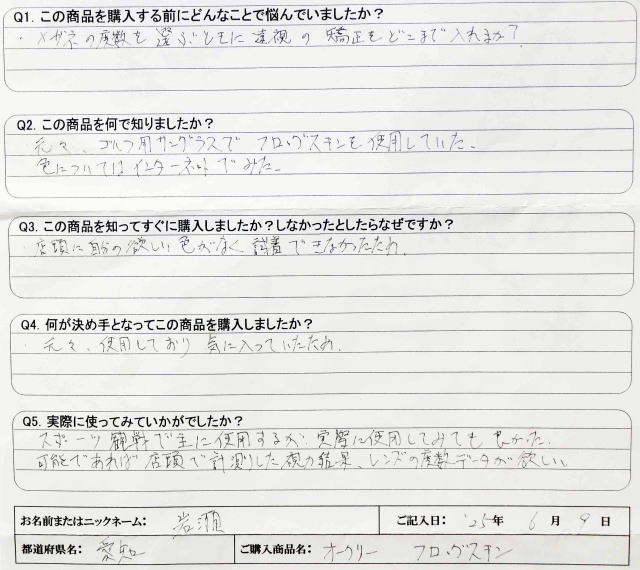 Q1. この商品を購入する前にどんなことで悩んでいましたか？
・メガネの度数を選ぶとともに遠視の矯正をどこまで入れるか？
Q2. この商品を何で知りましたか？
元々、ゴルフ用サングラスでフロッグスキンを使用していた。
色についてはインターネットでみた。
Q3. この商品を知ってすぐに購入しましたか？しなかったとしたらなぜですか？
・店頭に自分の欲しい色がなく試着できなかったため。
Q4. 何が決め手となってこの商品を購入しましたか？
・元々、使用しており気に入っていたため。
Q5. 実際に使ってみていかがでしたか？
スポーツ観戦で主に使用するが、実際に使用してみても良かった。
可能であれば店頭で計測した視力結果、レンズの度数データが欲しい。
お名前またはニックネーム： 岩瀬 ご記入日： '25年 6月 9日
都道府県名： 愛知 ご購入商品名： オークリー フロッグスキン